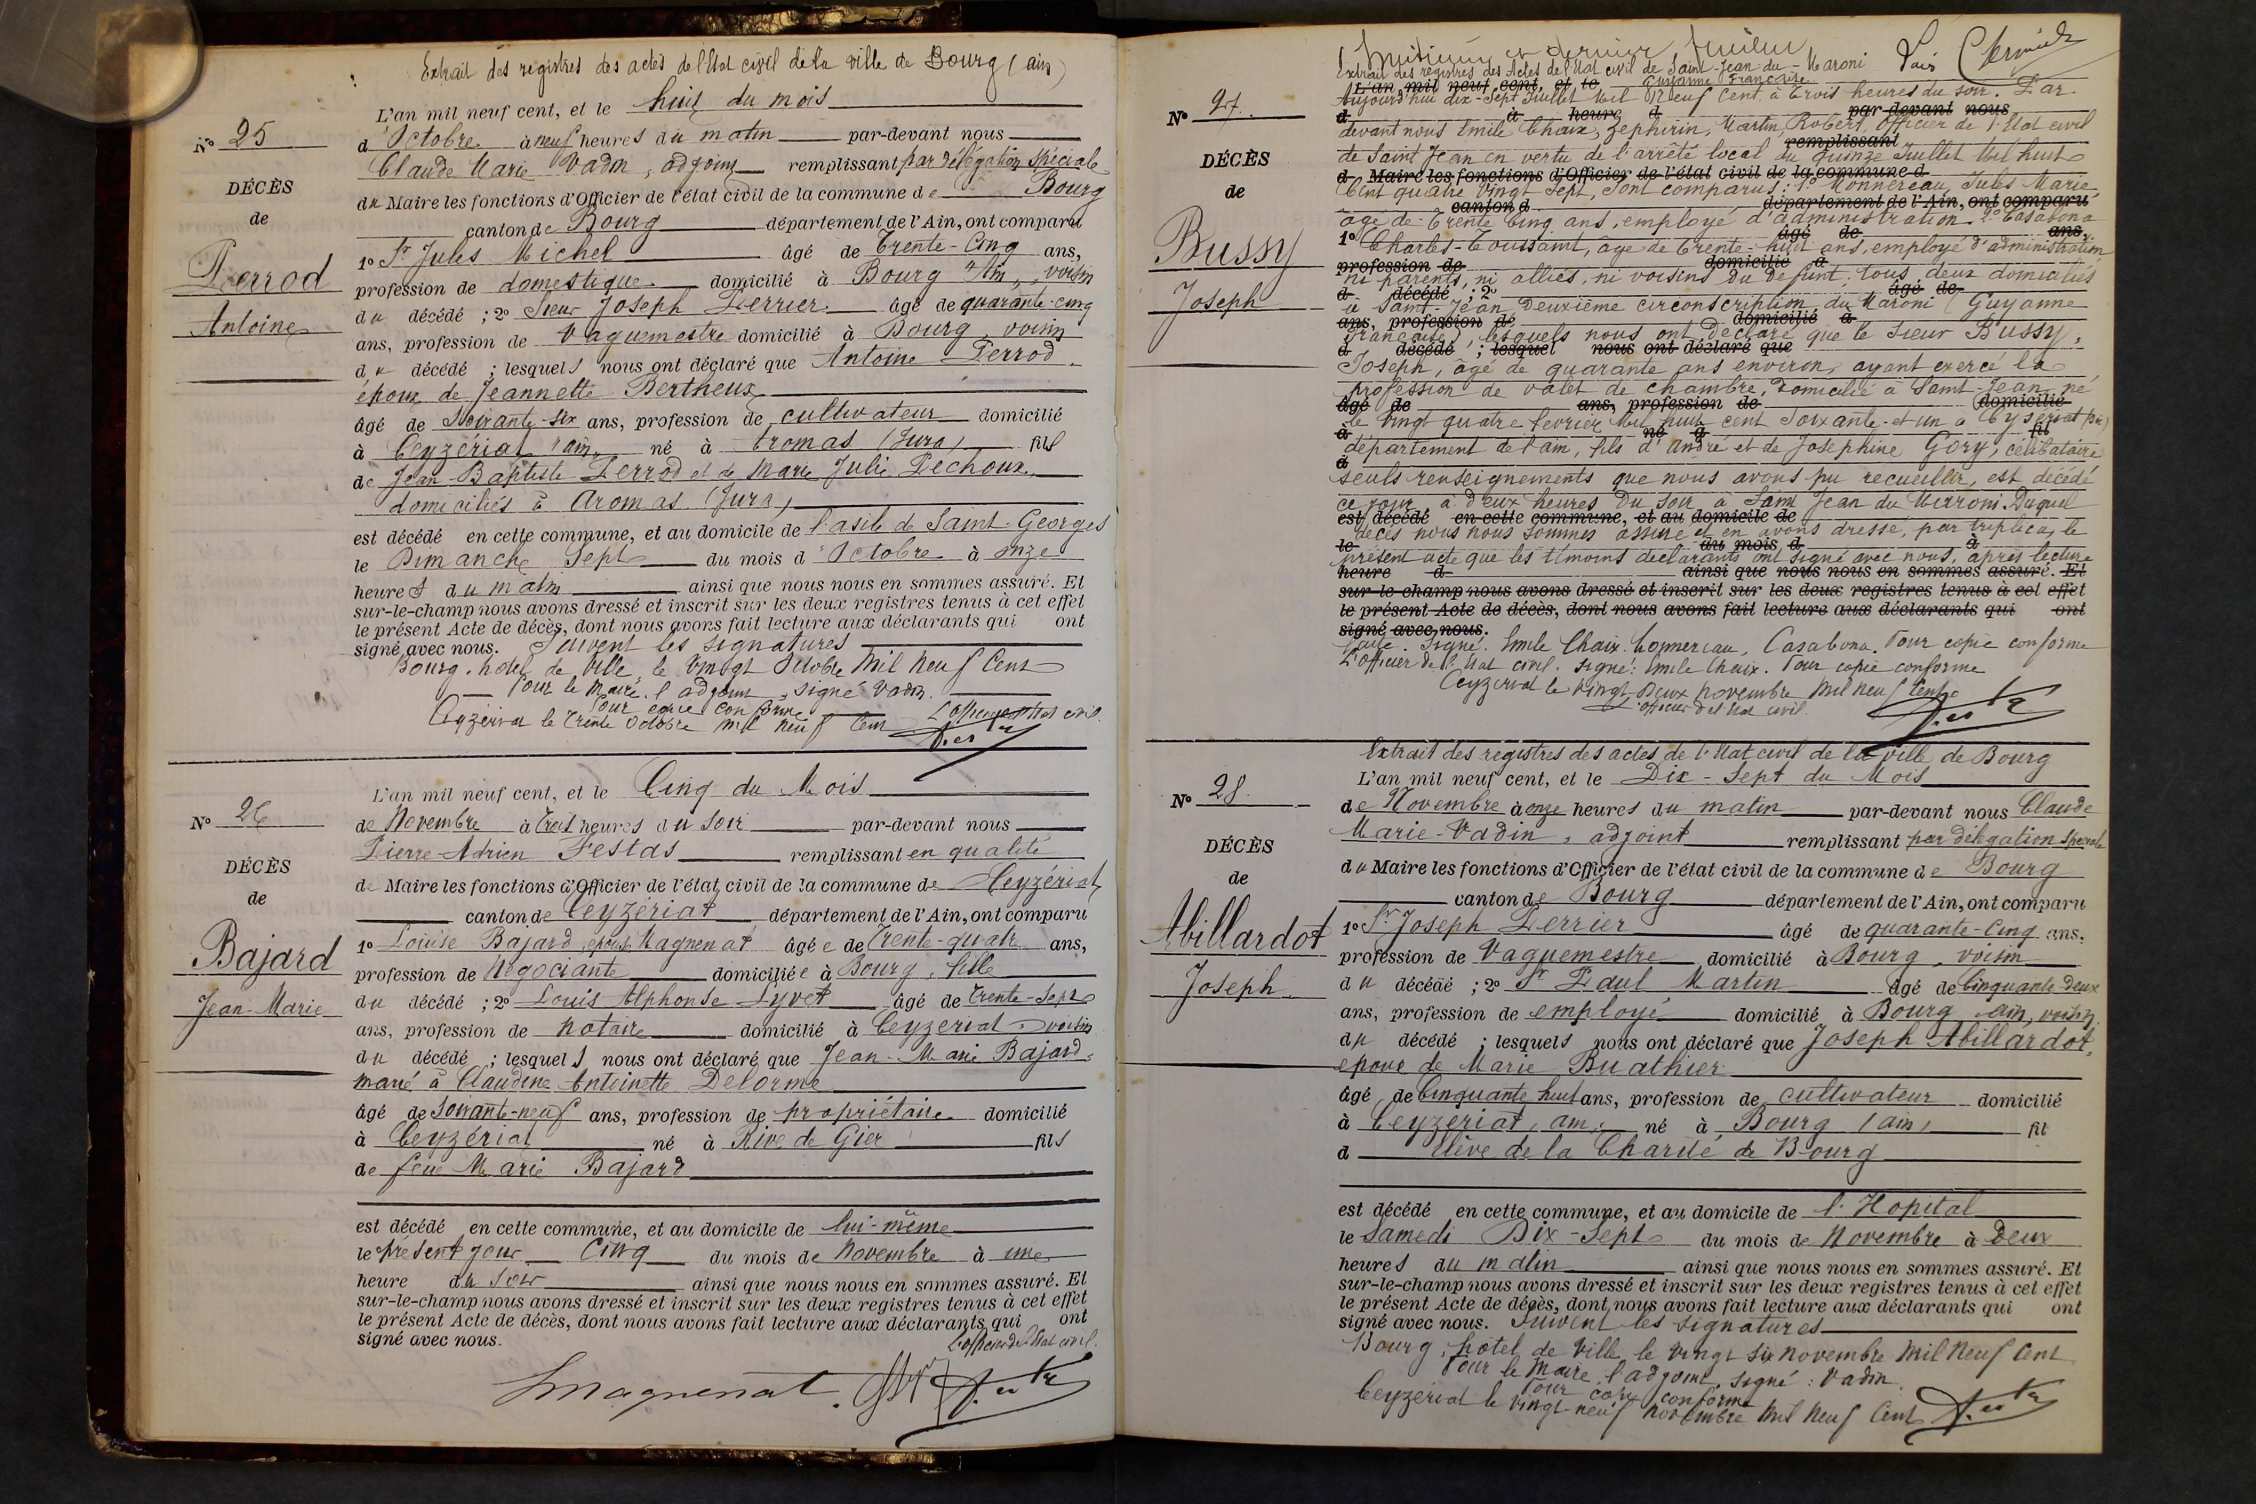 Extrait des registres des actes de l'Etat civil de la ville de Bourg (ain)
L'an mil neuf cent, et le huit du mois
N° 25
d'Octobre à neuf heures du matin par-devant nous
Claude Marie Vadin, adjoint remplissant par délégation spéciale
DÉCÈS
du Maire les fonctions d'Officier de l'état civil de la commune de Bourg
de
canton de Bourg département de l'Ain, ont comparu
Perrod
1° Sr Jules Michel âgé de trente-cinq ans,
profession de domestique domicilié à Bourg, voisin
Antoine
du décédé ; 2° Sieur Joseph Perrier âgé de quarante-cinq
ans, profession de Vaguemestre domicilié à Bourg voisin
du décédé ; lesquels nous ont déclaré que Antoine Perrod
époux de Jeannette Bertheux
âgé de soixante-six ans, profession de cultivateur domicilié
à Ceyzériat (ain) né à Aromas (Jura) fils
de Jean-Baptiste Perrod et de Marie Julie Pechoux
domiciliés à Aromas (Jura)
est décédé en cette commune, et au domicile de l'asile de Saint-Georges
le Dimanche Sept du mois d'Octobre à onze
heures du matin ainsi que nous nous en sommes assuré. Et
sur-le-champ nous avons dressé et inscrit sur les deux registres tenus à cet effet
le présent Acte de décès, dont nous avons fait lecture aux déclarants qui ont
signé avec nous. Suivent les signatures
Bourg, hotel de Ville, le vingt Octobre Mil Neuf Cent
Pour le Maire, l'adjoint, signé Vadin.
Pour copie conforme
Ceyzériat le trente Octobre mil neuf Cent L'officier de l'Etat civil.
L'an mil neuf cent, et le Cinq du Mois
N° 26
de Novembre à trois heures du soir par-devant nous
Pierre-Adrien Festas remplissant en qualité
DÉCÈS
de Maire les fonctions d'Officier de l'état civil de la commune de Ceyzériat
de
canton de Ceyzériat département de l'Ain, ont comparu
Bajard
1° Louise Bajard, épouse Magnenat âgée de trente-quatre ans,
profession de Négociante domiciliée à Bourg, fille
Jean-Marie
du décédé ; 2° Louis Alphonse Lyvet âgé de trente-sept
ans, profession de notaire domicilié à Ceyzeriat voisin
du décédé ; lesquels nous ont déclaré que Jean-Marie Bajard,
marié à Claudine Antoinette Delorme
âgé de soixante-neuf ans, profession de propriétaire domicilié
à Ceyzériat né à Rive de Gier fils
de feue Marie Bajard
est décédé en cette commune, et au domicile de lui-même
le présent jour Cinq du mois de Novembre à une
heure du soir ainsi que nous nous en sommes assuré. Et
sur-le-champ nous avons dressé et inscrit sur les deux registres tenus à cet effet
le présent Acte de décès, dont nous avons fait lecture aux déclarants qui ont
signé avec nous.
L'officier de l'Etat civil.
Lmagnenat
et dernier
Extrait des registres des Actes de l'Etat civil de Saint-Jean-du-Maroni
Guyanne Française
L'an mil neuf cent, et le
N° 27.
Aujourd'hui dix-Sept Juillet Mil Neuf Cent à trois heures du soir. Par
d à heure d par-devant nous
devant nous Emile Chaix, Zephirin, Martin, Robert, Officier de l'Etat civil
remplissant
DÉCÈS
de Saint Jean en vertu de l'arrêté local du Quinze Juillet Mil huit
d Maire les fonctions d'Officier de l'état civil de la commune d
de
Cent quatre vingt Sept, sont comparus : 1° Monnereau, Jules Marie
canton d département de l'Ain, ont comparu
Bussy
âgé de trente cinq ans, employé d'administration. 2° Casabona
1° âgé de ans,
Charles-Toussaint, âgé de trente-huit ans, employé d'administration
profession de domicilié à
ni parents, ni alliés, ni voisins du défunt, tous deux domiciliés
Joseph
d décédé ; 2° âgé de
à Saint-Jean Deuxième circonscription du Maroni (Guyanne
ans, profession de domicilié à
Française), lesquels nous ont déclaré que le sieur Bussy,
d décédé ; lesquel nous ont déclaré que
Joseph, âgé de quarante ans environ, ayant exercé la
profession de valet de chambre, domicilié à Saint-Jean, né
âgé de ans, profession de domicilié
le vingt quatre février Mil huit cent soixante-et-un à Cyseriat (sic)
à né à fil
département de l'ain, fils d'André et de Joséphine Gory, célibataire
d
seuls renseignements que nous avons pu recueillir, est décédé
ce jour à deux heures du soir à Saint Jean du Merroni. Duquel
est décédé en cette commune, et au domicile de
décès nous nous sommes assuré et en avons dressé, par triplica, le
le du mois d à
présent acte que les témoins déclarants ont signé avec nous, après lecture
heure d ainsi que nous nous en sommes assuré. Et
sur-le-champ nous avons dressé et inscrit sur les deux registres tenus à cet effet
le présent Acte de décès, dont nous avons fait lecture aux déclarants qui ont
signé avec nous.
faite. Signé : Emile Chaix. Monnereau, Casabona. Pour copie conforme
L'officier de l'Etat civil. signé : Emile Chaix. Pour copie conforme
Ceyzeriat le vingt-deux novembre Mil neuf Cent
L'officier de l'Etat civil.
Extrait des registres des actes de l'Etat civil de la ville de Bourg
L'an mil neuf cent, et le Dix-Sept du Mois
N° 28.
de Novembre à onze heures du matin par-devant nous Claude
Marie-Vadin, adjoint remplissant par délégation spéciale
DÉCÈS
du Maire les fonctions d'Officier de l'état civil de la commune de Bourg
de
canton de Bourg département de l'Ain, ont comparu
Abillardot
1° Sr Joseph Perrier âgé de quarante-cinq ans,
profession de Vaguemestre domicilié à Bourg, voisin
Joseph
du décédé ; 2° Sr Paul Martin âgé de cinquante-deux
ans, profession de employé domicilié à Bourg ain, voisin
du décédé ; lesquels nous ont déclaré que Joseph Abillardot,
époux de Marie Buathier
âgé de Cinquante huit ans, profession de cultivateur domicilié
à Ceyzeriat, ain, né à Bourg (ain) fil
d Elève de la Charité de Bourg
est décédé en cette commune, et au domicile de l'Hopital
le Samedi Dix-Sept du mois de Novembre à Deux
heures du matin ainsi que nous nous en sommes assuré. Et
sur-le-champ nous avons dressé et inscrit sur les deux registres tenus à cet effet
le présent Acte de décès, dont nous avons fait lecture aux déclarants qui ont
signé avec nous. Suivent les signatures
Bourg, hotel de Ville le vingt six novembre Mil Neuf Cent
Pour le Maire, l'adjoint, signé : Vadin.
Pour copie conforme
Ceyzériat le vingt neuf novembre Mil Neuf Cent